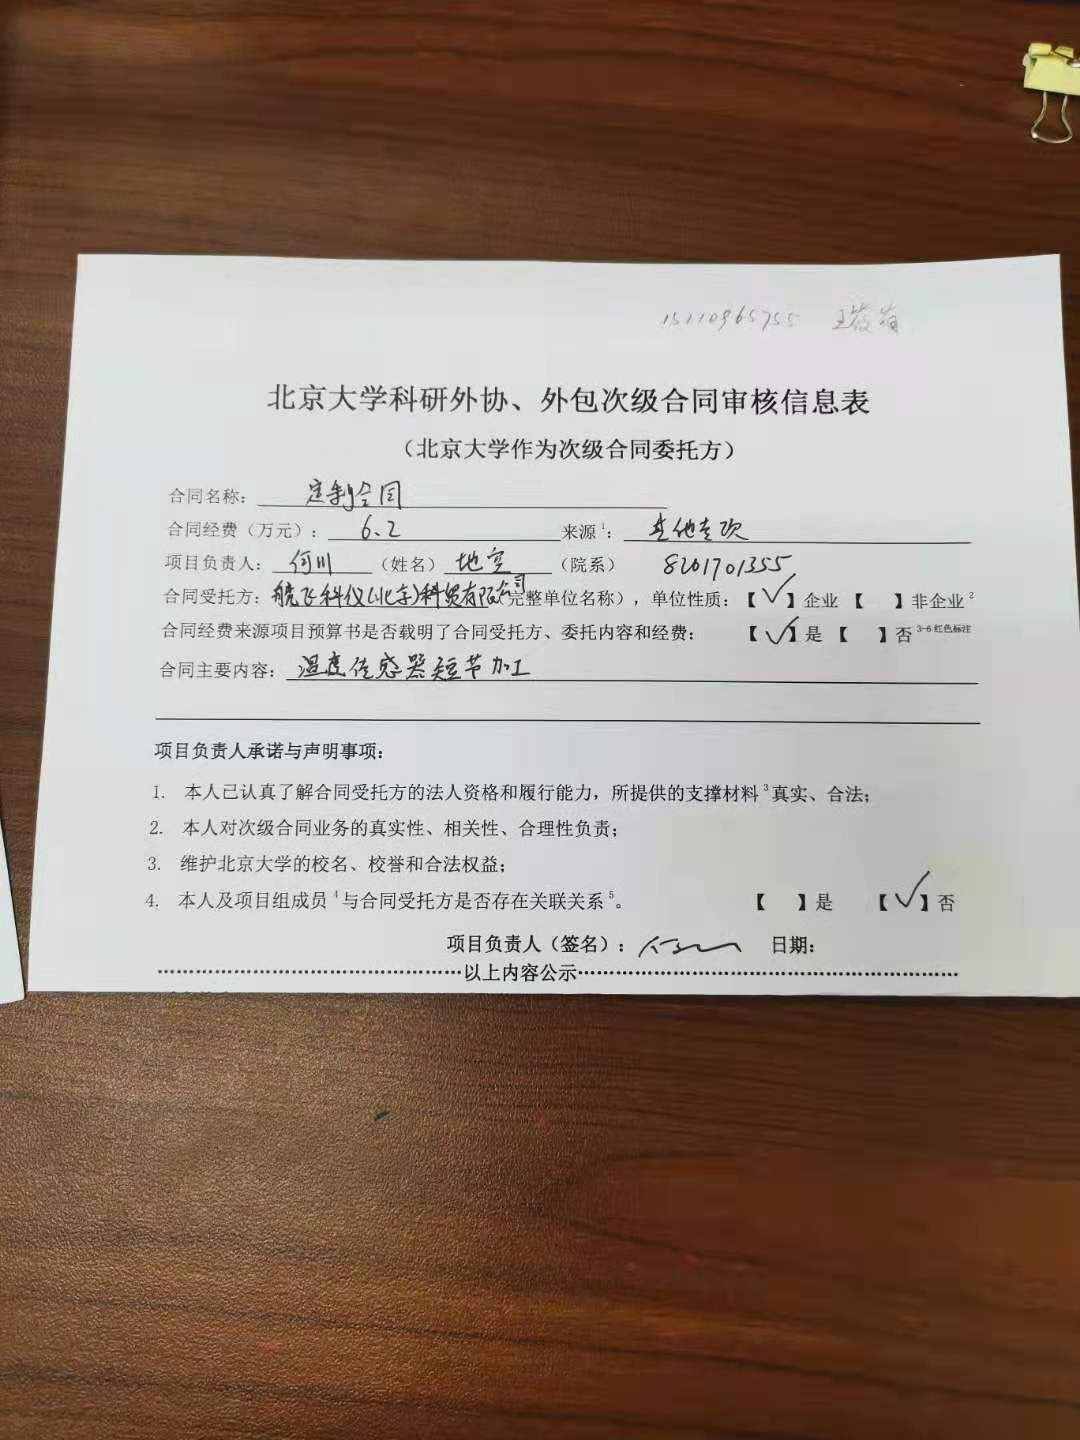 15110965755 王
北京大学科研外协、外包次级合同审核信息表
（北京大学作为次级合同委托方）
合同名称： 定制合同
合同经费（万元）： 6.2 来源¹： 其他专项
项目负责人： 何川 （姓名） 地空 （院系） 8201701355
合同受托方： 航飞科仪(北京)科贸有限公司（完整单位名称），单位性质：【√】企业【 】非企业²
合同经费来源项目预算书是否载明了合同受托方、委托内容和经费： 【√】是【 】否 ³⁻⁶红色标注
合同主要内容： 温度传感器短节加工
项目负责人承诺与声明事项：
1. 本人已认真了解合同受托方的法人资格和履行能力，所提供的支撑材料³真实、合法；
2. 本人对次级合同业务的真实性、相关性、合理性负责；
3. 维护北京大学的校名、校誉和合法权益；
4. 本人及项目组成员⁴与合同受托方是否存在关联关系⁵。 【 】是 【√】否
项目负责人（签名）： 何川 日期：
以上内容公示